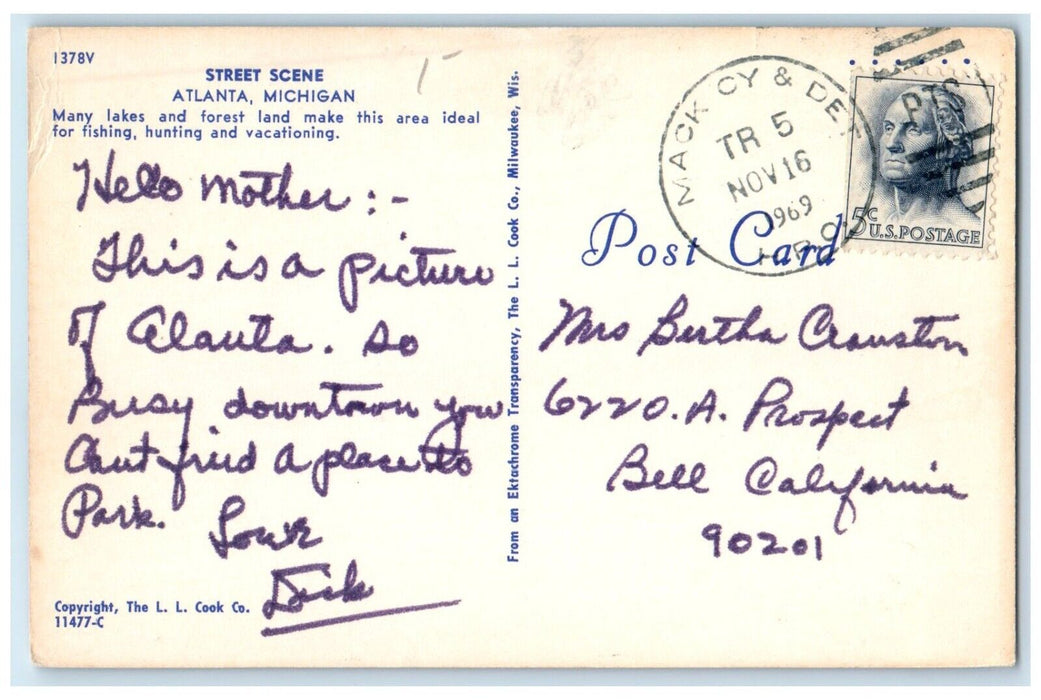 1378V
STREET SCENE
ATLANTA, MICHIGAN
Many lakes and forest land make this area ideal
for fishing, hunting and vacationing.
Hello Mother:-
This is a picture
of Alanta. So
Busy downtown you
Cant find a place to
Park.
Love
Dick
Copyright, The L. L. Cook Co.
11477-C
From an Ektachrome Transparency, The L. L. Cook Co., Milwaukee, Wis.
MACK CY & DET
TR 5
NOV 16
1969
R.P.O.
PTS
5c
U.S. POSTAGE
Post Card
Mrs Bertha Cranston
6220.A. Prospect
Bell California
90201